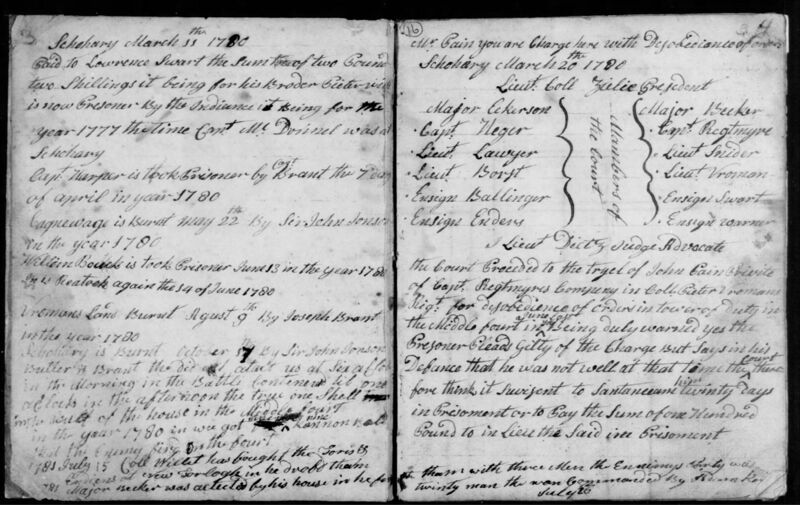 3
Schohary March 11th 1780
Paid to Lowrence Swart the Sum two of two Pound
two Shillings it being for his Broder Peter
is now Presoner By the Indiance it Being for the
year 1777 the time Capt Mc Donnel was at
Schohary
Capt Harper is took Prisoner by Capt Brant the 7 day
of april in year 1780
Cagnewage is Burnt may 22th By Sir John Jonson
in the year 1780
William Bouck is took Prisoner June 13 in the year 1780
is Reatook again the 14 of June 1780
Vromans Land Burnt Agust 9th By Joseph Brant
in the year 1780
Schohary is Burnt October 17th By Sir John Jonson
Butler & Brant the did at us at Six a Clok
in the Morning in the Battle til one
a Clock in the afternoon the true one Shell
of the house in the Middle fourt
in the year 1780 in we got Kannon Balls
that the Enemy on the fourt
1781 July 15 Coll Willet has bought the Toris &
of New in he drove tham
1781 Major Becker was by his house in he
16
4
Mr. Pain you are Charge here with Desobediance of orders
Schohary March 20th 1780
Lieut. Coll Zielie President
Major Eckerson
Capt. Heger
Lieut. Lawyer
Lieut Borst
Ensign Ballinger
Ensign Enders
Mambers of the Court
Major Becker
Capt. Regtmyre
Lieut Snider
Lieut. Vroman
Ensign Swart
Ensign Warner
Lieut Diets Judge Advocate
the Court Proceded to the tryel of John Pain Private
of Capt. Regtmyres Company in Coll Pieter Vromans
Rigt. for desobedience of orders in tower of duty in
the Meddle fourt in June Last Being duly warned yes the
Presoner Plead Gilty of the Charge But Says in his
Defence that he was not well at that Tame the Court there
fore think it Suvisent to Santance him twinty Days
in Presoment or to Pay the Sum of one Hundred
Pound to in Lieu the Said ine Presoment
tham with three Men the Ennimys Party was
twinty man the wan Commanded By
July